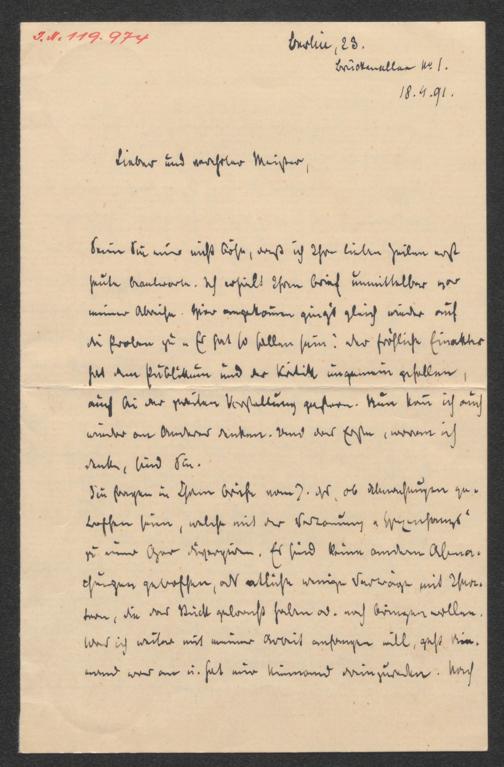 I.N. 119.974
Berlin, 23.
Brückenallee No 1.
18.4.91.
Lieber und verehrter Meister,
Seien Sie mir nicht böse, daß ich Ihre lieben Zeilen erst
heute beantworte. Ich erhielt Ihren Brief unmittelbar vor
meiner Abreise. Hier angekommen ging's gleich wieder auf
die Proben zu „Es hat so sollen sein“; der fröhliche Einakter
hat dem Publikum und der Kritik ungemein gefallen,
auch bei der zweiten Vorstellung gestern. Nun kann ich auch
wieder an Anderes denken. Und das Erste, woran ich
denke, sind Sie.
Sie fragen in Ihrem Briefe vom 7. ds, ob Abmachungen ge-
troffen seien, welche mit der Vertonung
zu einer Oper divergiren. Es sind keine anderen Abma-
chungen getroffen, als etliche wenige Verträge mit Thea-
tern, die das Stück gebracht haben od. noch bringen wollen.
Was ich weiter mit meiner Arbeit anfangen will, geht Nie-
mand was an u. hat mir Niemand dreinzureden. Nach